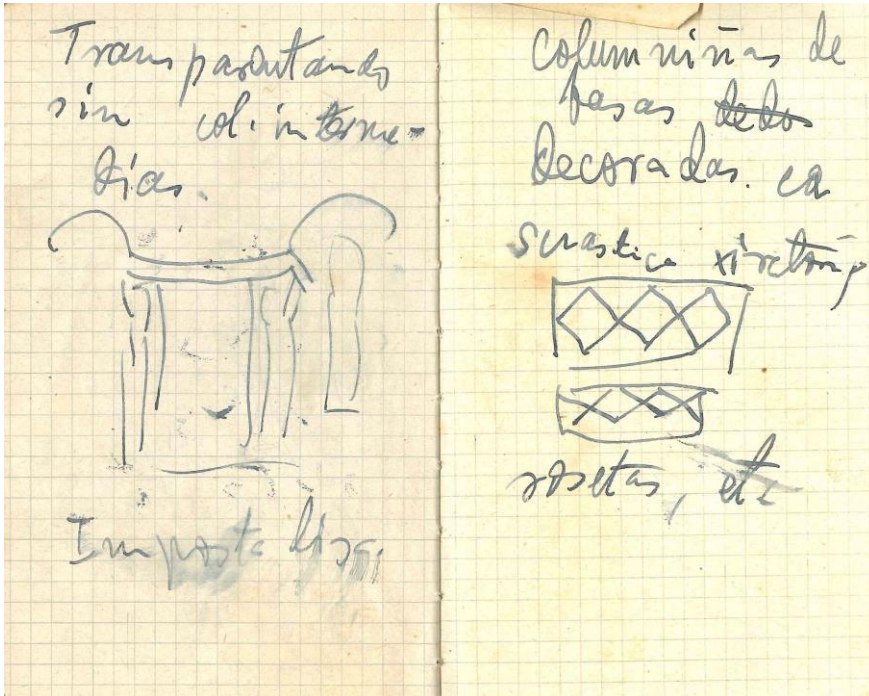 sin col. interme-
dias.
Imposta lisa,
columniñas de
basas dedos
decoradas. ca
suastica
rosetas, etc